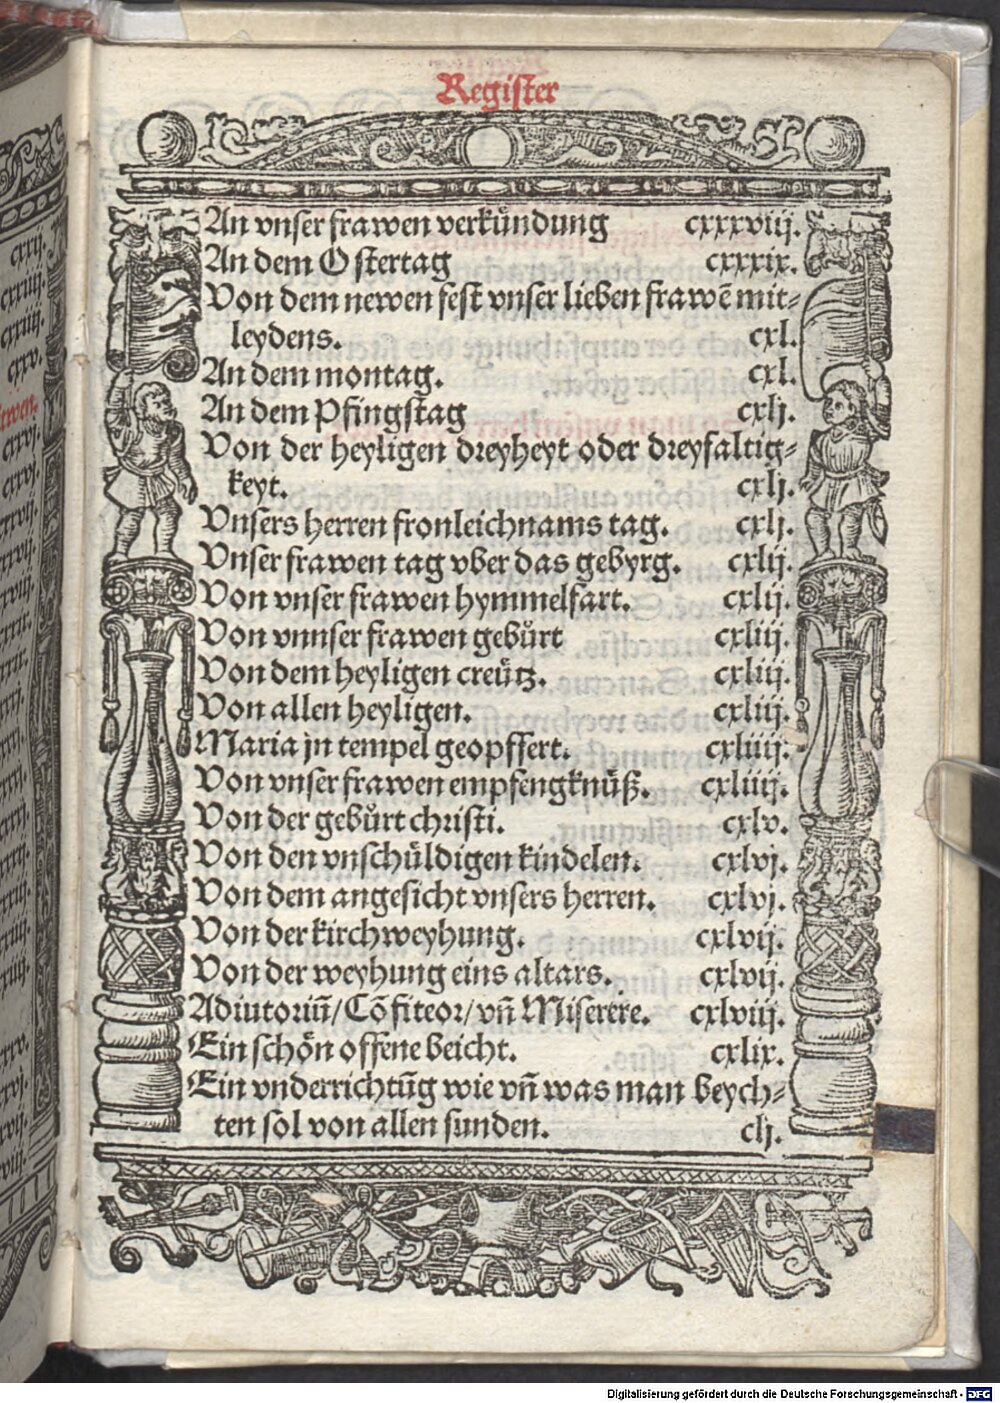 Register
An vnser frawen verkündung cxxxviij.
An dem Ostertag cxxxix.
Von dem newen fest vnser lieben frawē mit-
leydens. cxl.
An dem montag. cxl.
An dem Pfingstag cxlj.
Von der heyligen dreyheyt oder dreyfaltig-
keyt. cxlj.
Vnsers herren fronleichnams tag. cxlj.
Vnser frawen tag vber das gebyrg. cxlij.
Von vnser frawen hymmelfart. cxlij.
Von vnnser frawen gebůrt cxliij.
Von dem heyligen creütz. cxliij.
Von allen heyligen. cxliij.
Maria jn tempel geopffert. cxliiij.
Von vnser frawen empfengknüß. cxliiij.
Von der gebůrt christi. cxlv.
Von den vnschüldigen kindelen. cxlvj.
Von dem angesicht vnsers herren. cxlvj.
Von der kirchweyhung. cxlvij.
Von der weyhung eins altars. cxlvij.
Adiutoriū/Cōfiteor/vñ Miserere. cxlviij.
Ein schön offene beicht. cxlix.
Ein vnderrichtūg wie vñ was man beych-
ten sol von allen sunden. clj.
cxxij.
cxxiij.
cxxiiij.
cxxv.
Digitalisierung gefördert durch die Deutsche Forschungsgemeinschaft - DFG